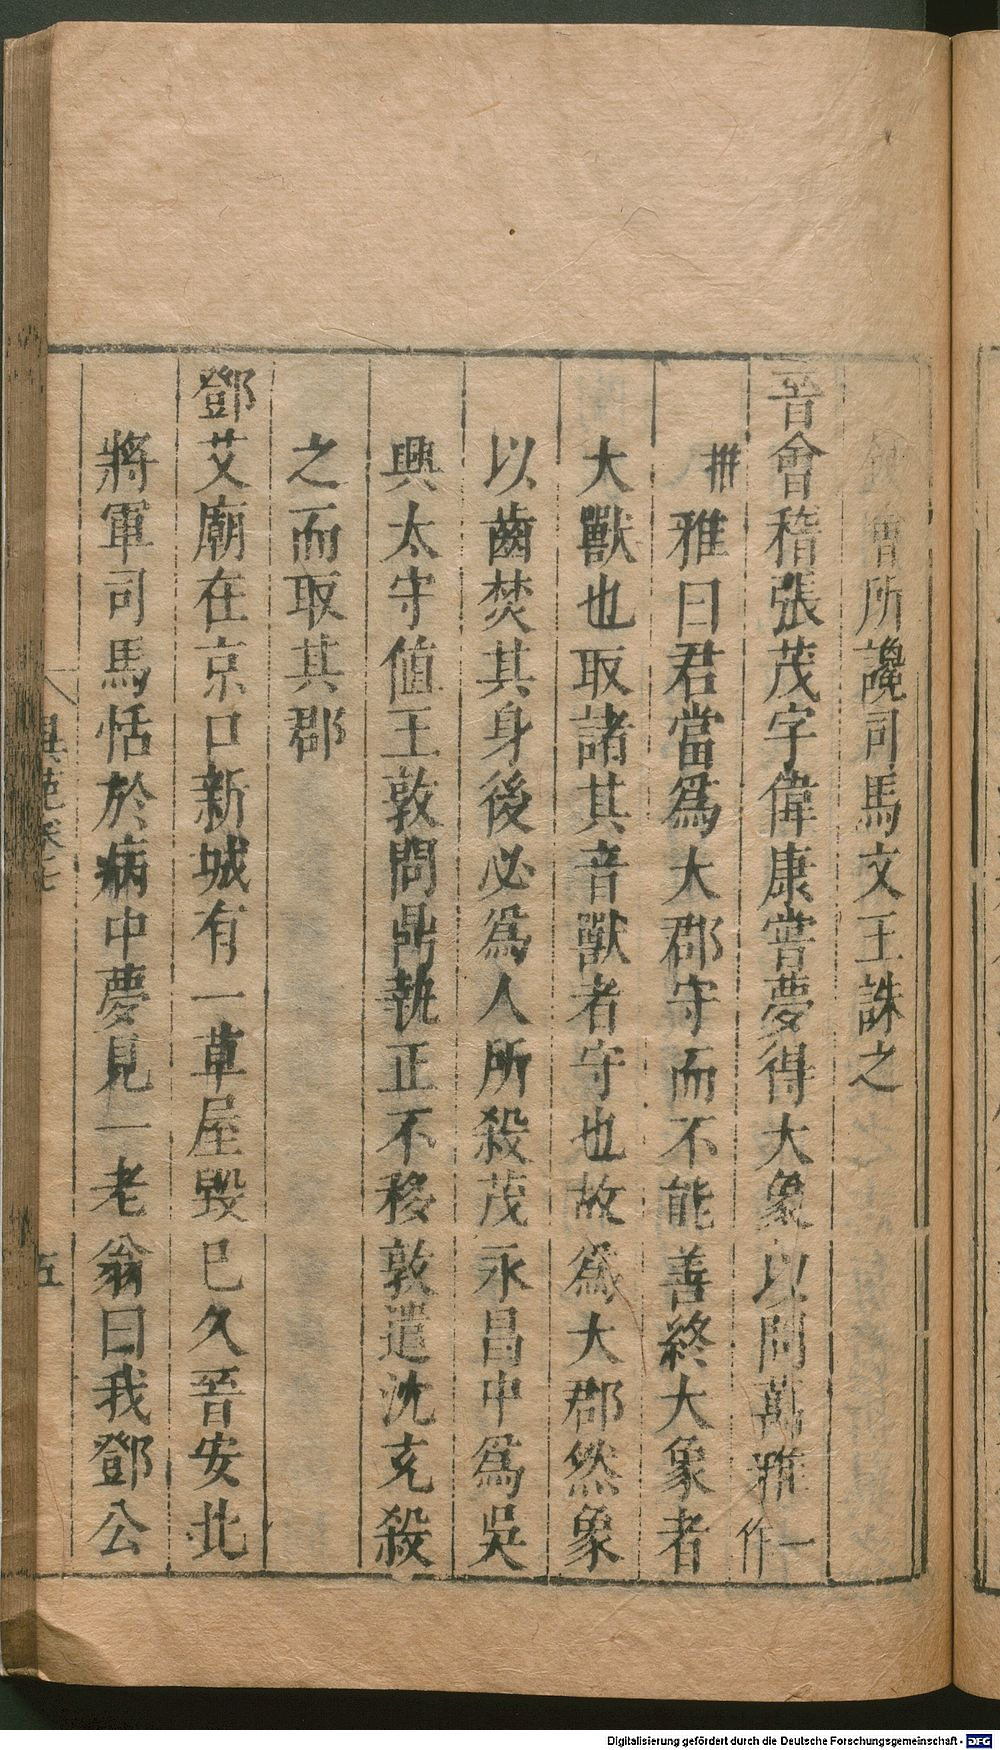 鍾會所讒司馬文王誅之
晉會稽張茂字偉康嘗夢得大象以問萬雅一作
卌雅曰君當爲大郡守而不能善終大象者
大獸也取諸其音獸者守也故爲大郡然象
以齒焚其身後必爲人所殺茂永昌中爲吳
興太守值王敦問鼎執正不移敦遣沈充殺
之而取其郡
鄧艾廟在京口新城有一草屋毀已久晉安北
將軍司馬恬於病中夢見一老翁曰我鄧公
異苑卷七
五
Digitalisierung gefördert durch die Deutsche Forschungsgemeinschaft - DFG